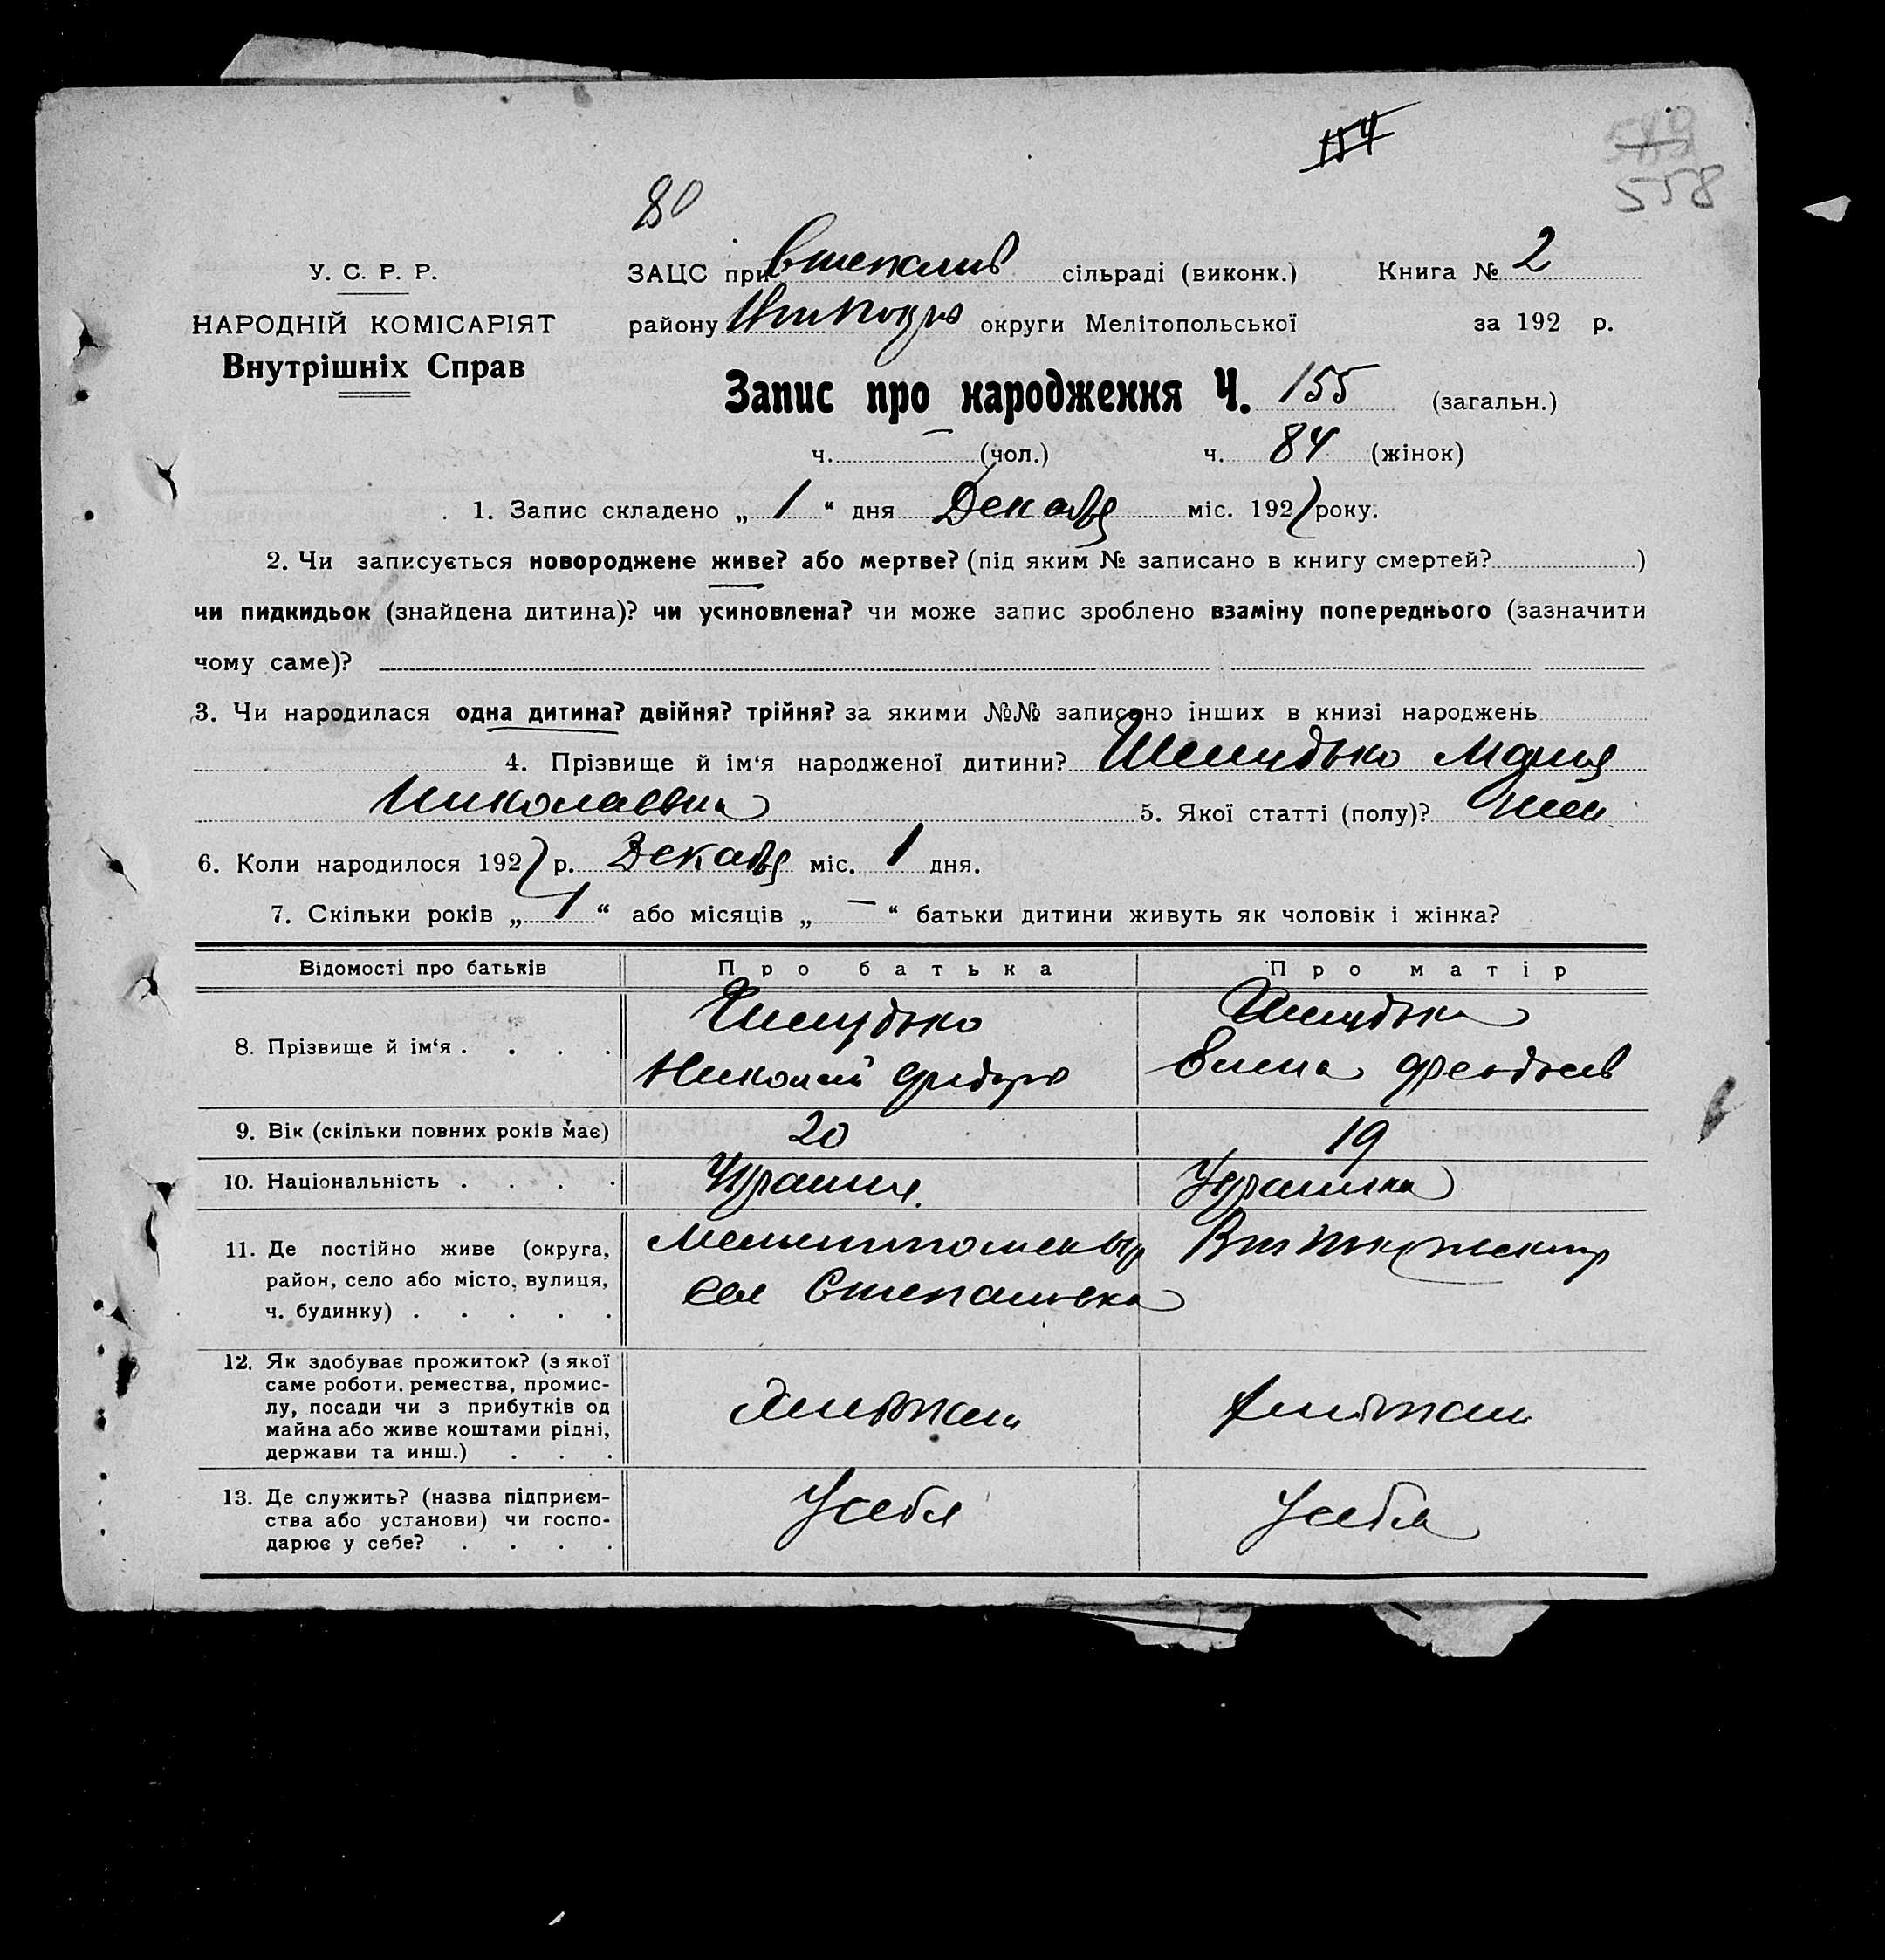 549
558
80
У. С. Р. Р.
НАРОДНІЙ КОМІСАРІЯТ
Внутрішніх Справ
ЗАЦС при сільраді (виконк.) Книга № 2
району округи Мелітопольської за 192 р.
Запис про народження Ч. 155 (загальн.)
ч. — (чол.) ч. 84 (жінок)
1. Запис складено „ 1 “ дня Декабря міс. 1927 року.
2. Чи записується новороджене живе? або мертве? (під яким № записано в книгу смертей? )
чи пидкидьок (знайдена дитина)? чи усиновлена? чи може запис зроблено взаміну попереднього (зазначити
чому саме)?
3. Чи народилася одна дитина? двійня? трійня? за якими №№ записано інших в книзі народжень
4. Прізвище й ім‘я народженої дитини? Шелудько Мария
Николаевна 5. Якої статті (полу)? жен
6. Коли народилося 1927 р. Декабря міс. 1 дня.
7. Скільки років „ 1 “ або місяців „ — “ батьки дитини живуть як чоловік і жінка?
Відомості про батьків Про батька Про матір
8. Прізвище й ім‘я . . . . Шелудько Шелудько
Николай
9. Вік (скільки повних років має) 20 19
10. Національність . . . . Украин. Украинка
11. Де постійно живе (округа,
район, село або місто, вулиця,
ч. будинку) . . . . .
сел Степановка
12. Як здобуває прожиток? (з якої
саме роботи. ремества, промис-
лу, посади чи з прибутків од
майна або живе коштами рідні,
держави та инш.) . . .
13. Де служить? (назва підприєм-
ства або установи) чи госпо-
дарює у себе? . . . .
У себя У себя